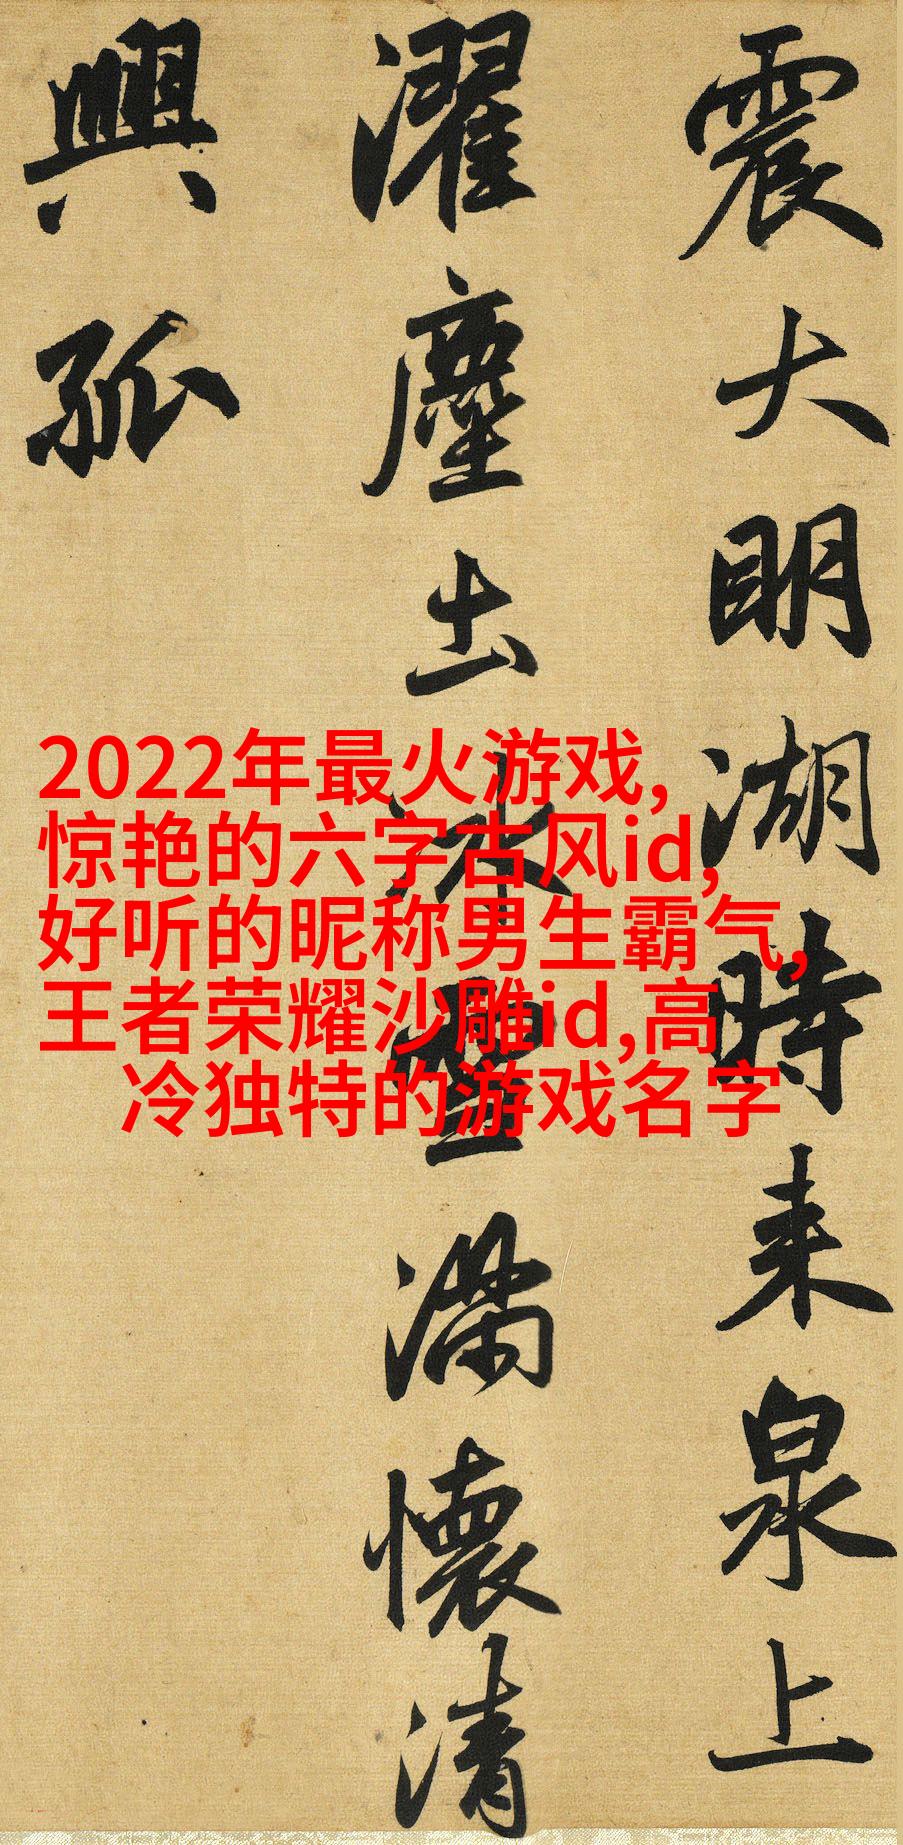 震大明湖時来泉上
濯塵出冰雪满懷清
興孤
2022年最火游戏,
惊艳的六字古风id,
好听的昵称男生霸气,
王者荣耀沙雕id,高
冷独特的游戏名字